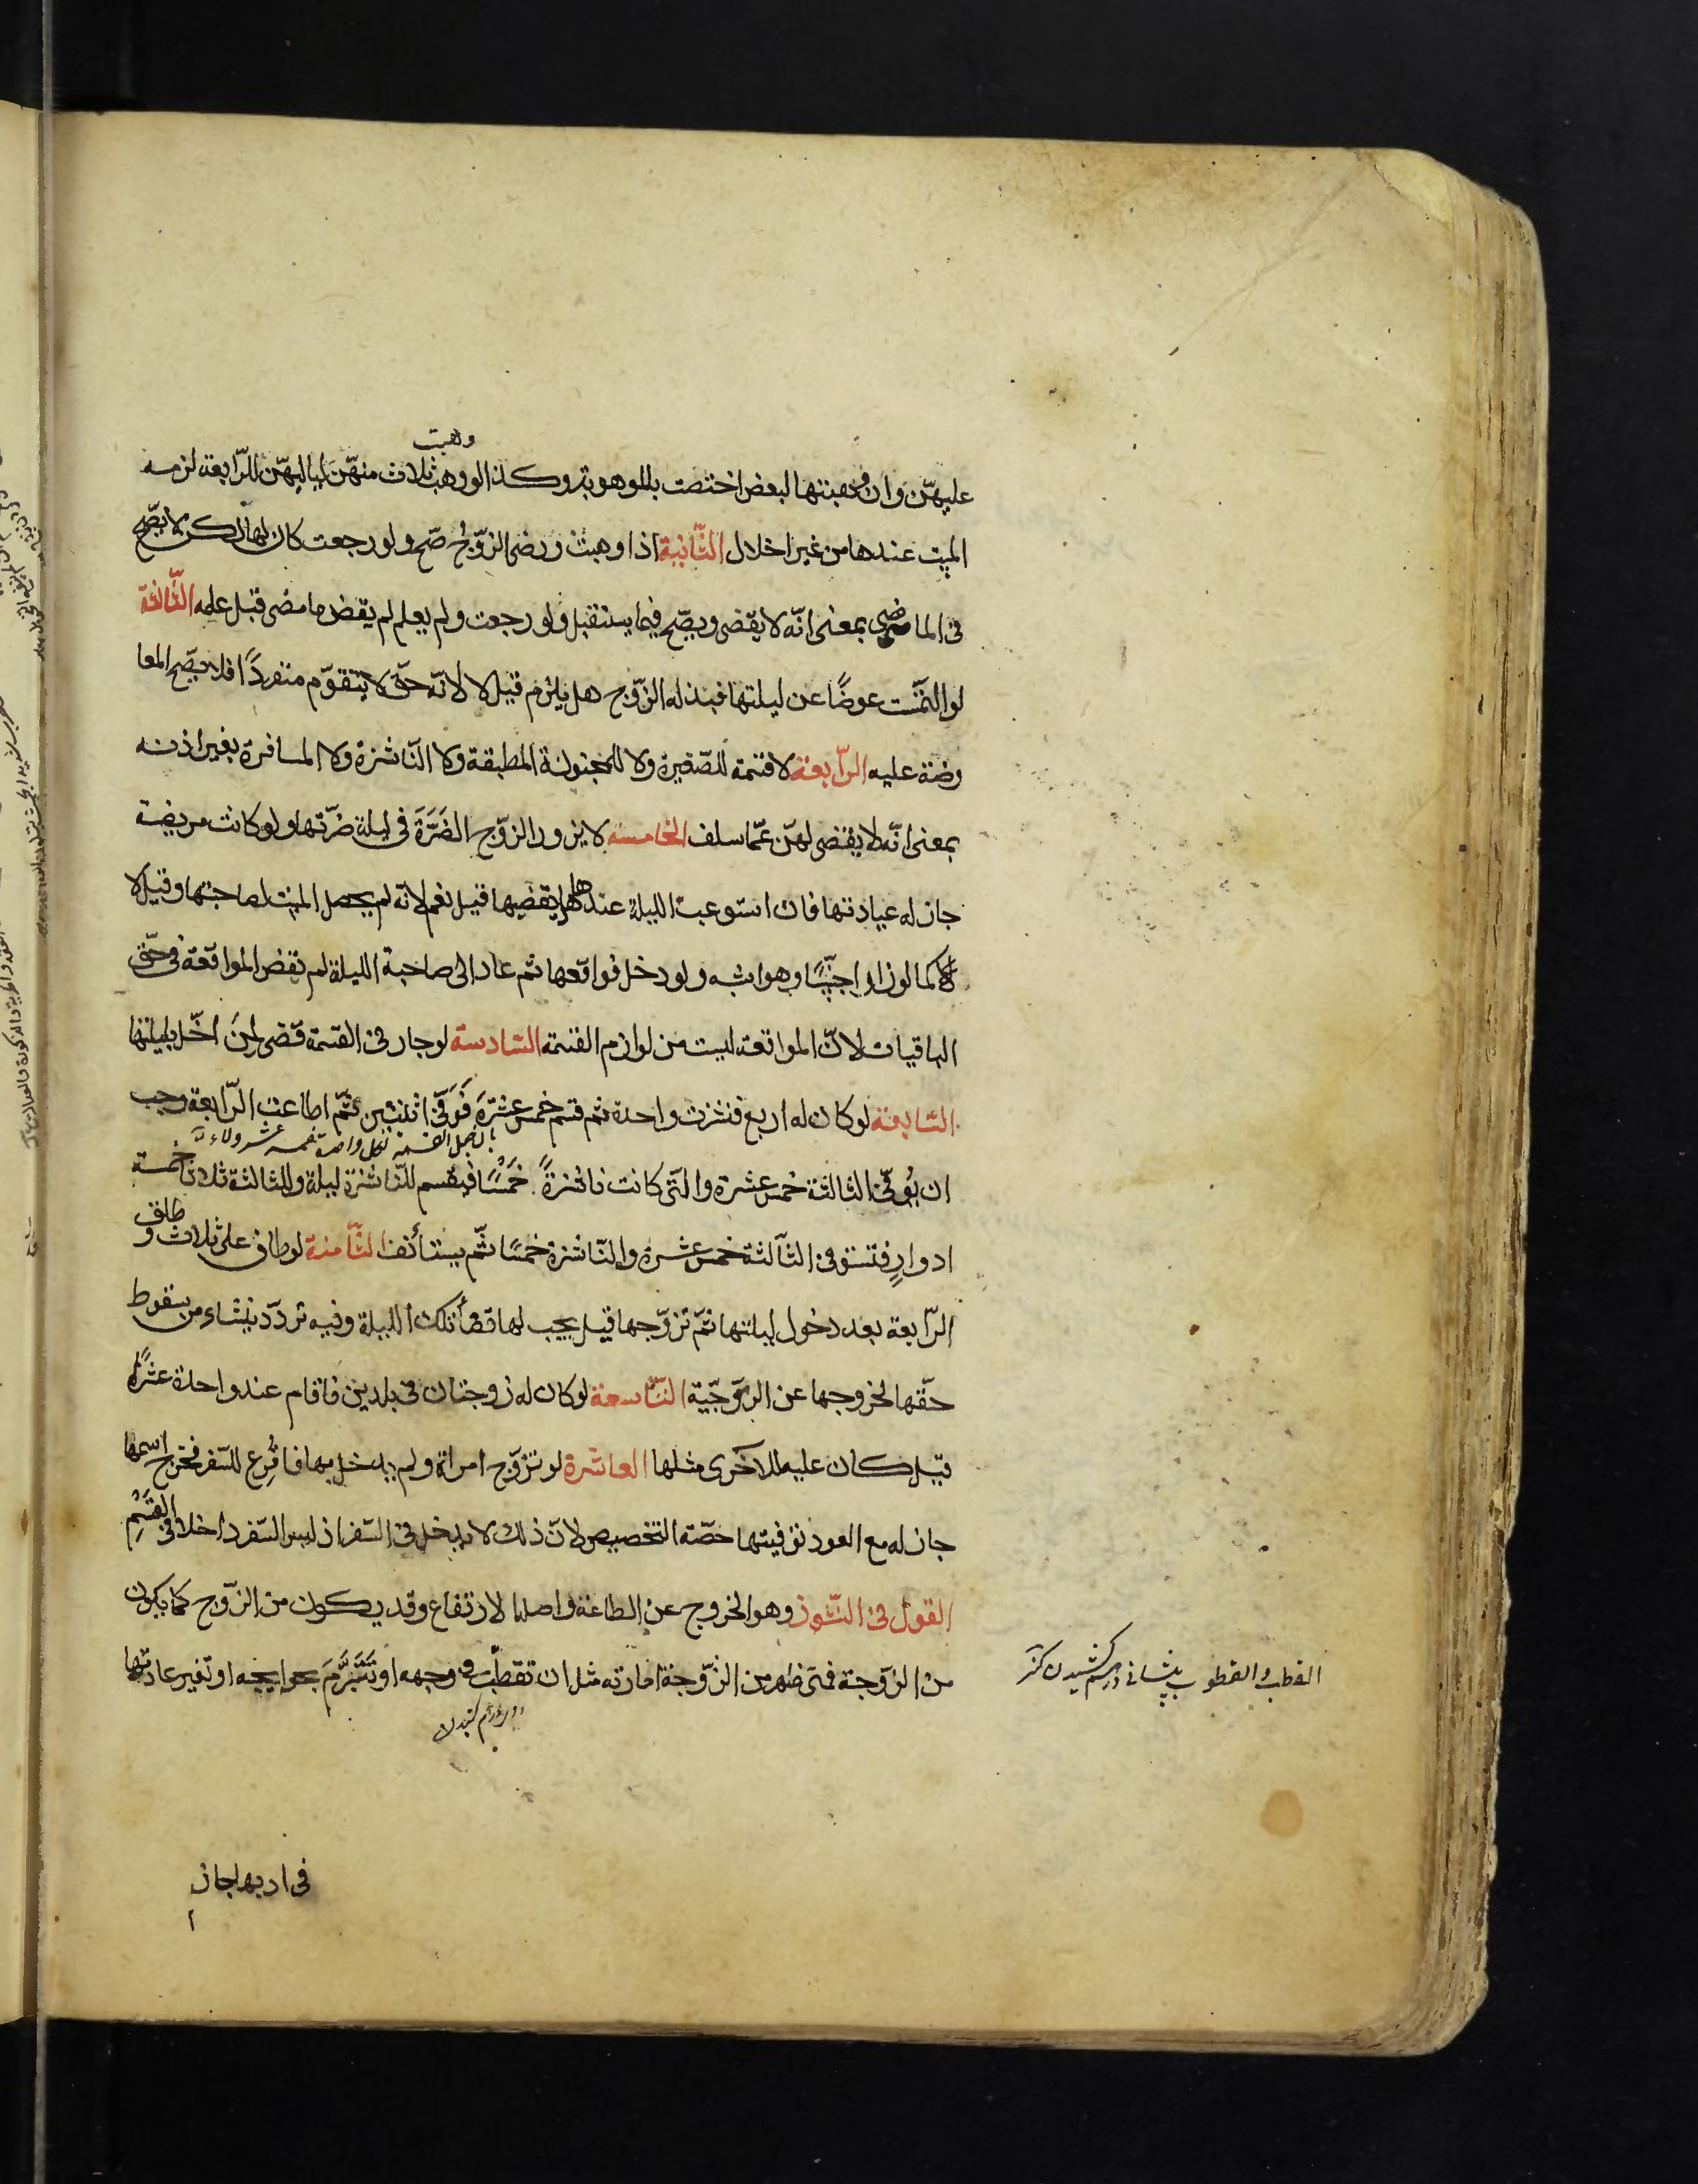 وهبت
عليهنّ وان وهبتها لبعض اختصت بالموهوبة وكذا لو وهب ثلاث منهنّ لياليهنّ للرّابعة لزمه
المبيت عندها من غير اخلال الثّانية اذا وهبت ورضى الزّوج صحّ ولو رجعت كان لها لكن لا يصّح
فى الماضى بمعنى انّه لا يقضى ويصّح فيما يستقبل ولو رجعت ولم يعلم لم يقض ما مضى قبل علمه الثّالثة
لو التمست عوضًا عن ليلتها فبذله الزّوج هل يلزم قيل لا لانّه حقّ لا يتقوّم منفردًا فلا يصّح المعا
وضة عليه الرّابعة لا قسمة للصّغيرة ولا للمجنونة المطبقة ولا النّاشزة ولا المسافرة بغير اذنه
بمعنى انّه لا يقضى لهنّ عمّا سلف الخامسة لا يزور الزّوج الضَرَّة فى ليلة ضرّتها ولو كانت مريضة
جاز له عيادتها فان استوعب الليلة عندها هل يقضيها قيل نعم لانّه لم يحصل المبيت لصاحبتها وقيل لا
كما لو زار اجنبيًّا وهو اشبه ولو دخل فواقعها ثم عاد الى صاحبة الليلة لم يقض المواقعة فى حقّ
الباقيات لانّ المواقعة ليست من لوازم القسمة السّادسة لو جار فى القسمة قضى لمن اخلّ بليلتها
السّابعة لو كان له اربع فنشزت واحدة ثم قسم خمس عشرة فوفّى اثنتين ثمّ اطاعت الرّابعة وجب
ان يُوفّى الثالثة خمس عشرة والّتى كانت ناشزةً خَمْسًا فيقسم للنّاشزة ليلة وللثالثة ثلاثا خمسة
ادوارٍ فتستوفى الثّالثة خمس عشرة والنّاشزة خمسًا ثمّ يستأنف الثّامنة لو طاف على ثلاث و طلق
الرّابعة بعد دخول ليلتها ثمّ تزوّجها قيل يجب لها قضأ تلك الليلة وفيه تردّد ينشاء من سقوط
حقّها لخروجها عن الزّوجّية التّاسعة لو كان له زوجتان فى بلدين فاقام عند واحدة عشرًا
قيل كان عليه للاخرى مثلها العاشرة لو تزوّج امراة ولم يدخل بها فاقرع للسّفر فخرج اسمها
جاز له مع العود توفيتها حصّة التّخصيص لانّ ذلك لا يدخل فى السّفر اذ ليس السّفر داخلا فى القَسْمِ
القول فى النّشوز وهو الخروج عن الطاعة واصله الارتفاع وقد يكون من الزّوج كما يكون
من الزّوجة فمتى ظهر من الزّوجة امارته مثل ان تقطّب فى وجهه او تَتَبَرَّمَ بحوايجه او تغير عادتها
القطب والقطوب پيشانى درهم كشيدن كنز
فى ادبها جاز